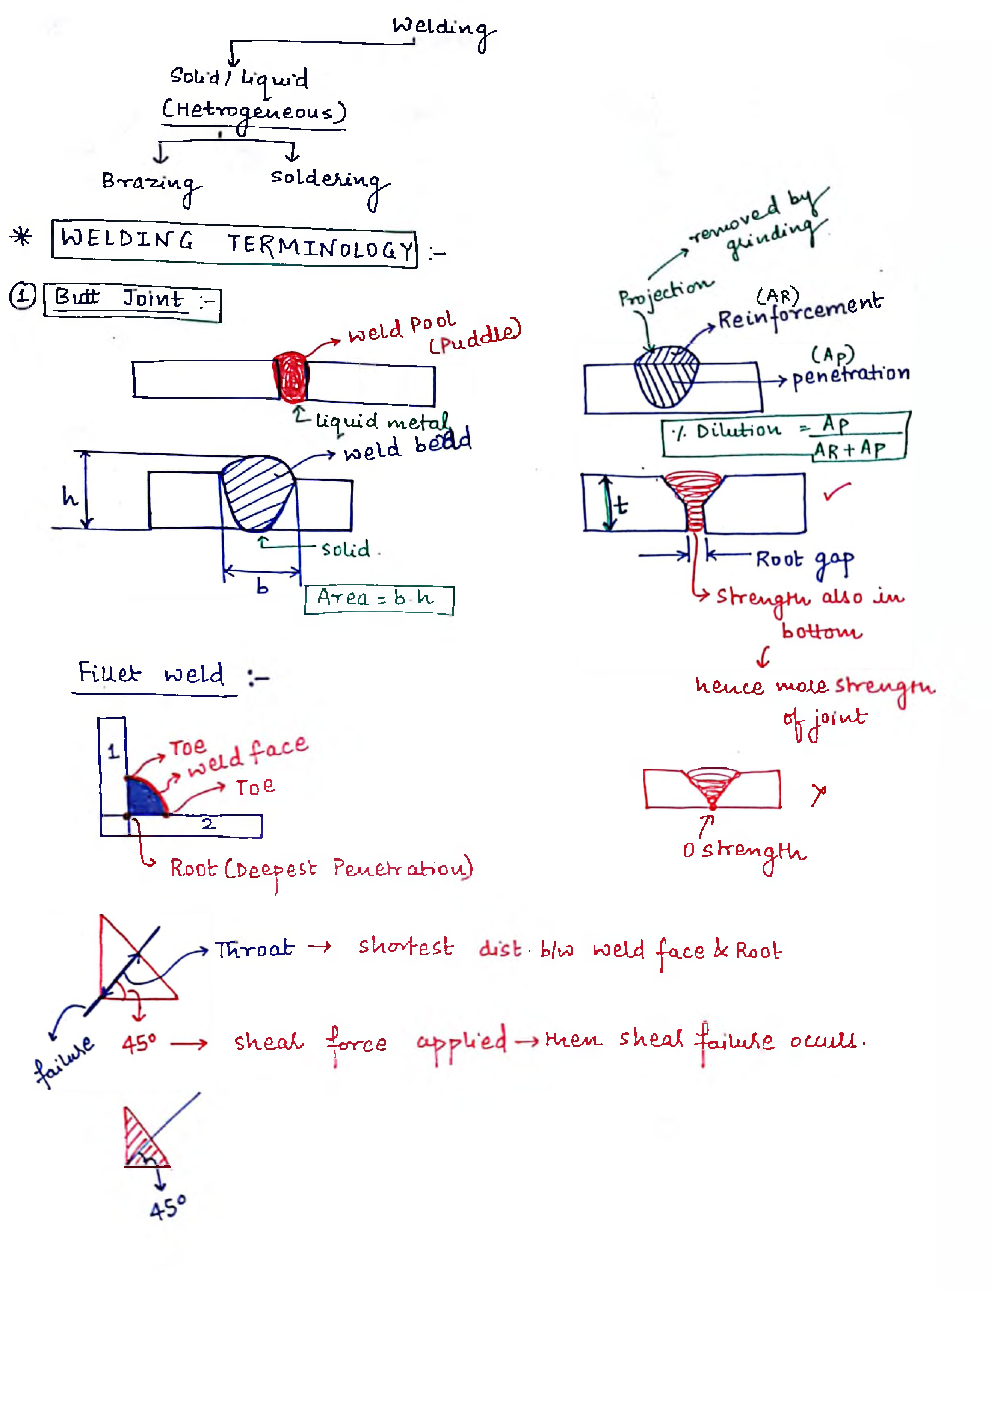 Welding
Solid/Liquid
(Hetrogeneous)
Brazing
Soldering
* WELDING TERMINOLOGY :-
① Butt Joint :-
Weld Pool
(Puddle)
Liquid metal
weld bead
h
solid.
b
Area = b·h
removed by
grinding
Projection
(AR)
Reinforcement
(Ap)
penetration
% Dilution = Ap
AR + Ap
t
Root gap
Strength also in
bottom
hence more strength
of joint
0 strength
Fillet weld :-
1
Toe
weld face
Toe
2
Root (Deepest Penetration)
Throat → shortest dist. b/w weld face & Root
failure
45° → shear force applied → then shear failure occurs.
45°